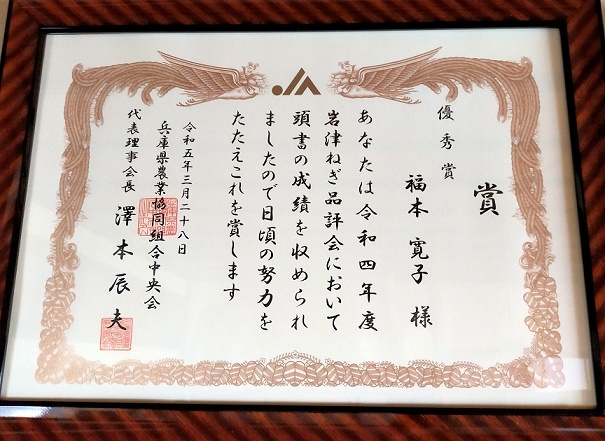 賞
優秀賞
福本 寛子 様
あなたは令和四年度
岩津ねぎ品評会において
頭書の成績を収められ
ましたので日頃の努力を
たたえこれを賞します
令和五年三月二十八日
兵庫県農業協同組合中央会
代表理事会長 澤本辰夫